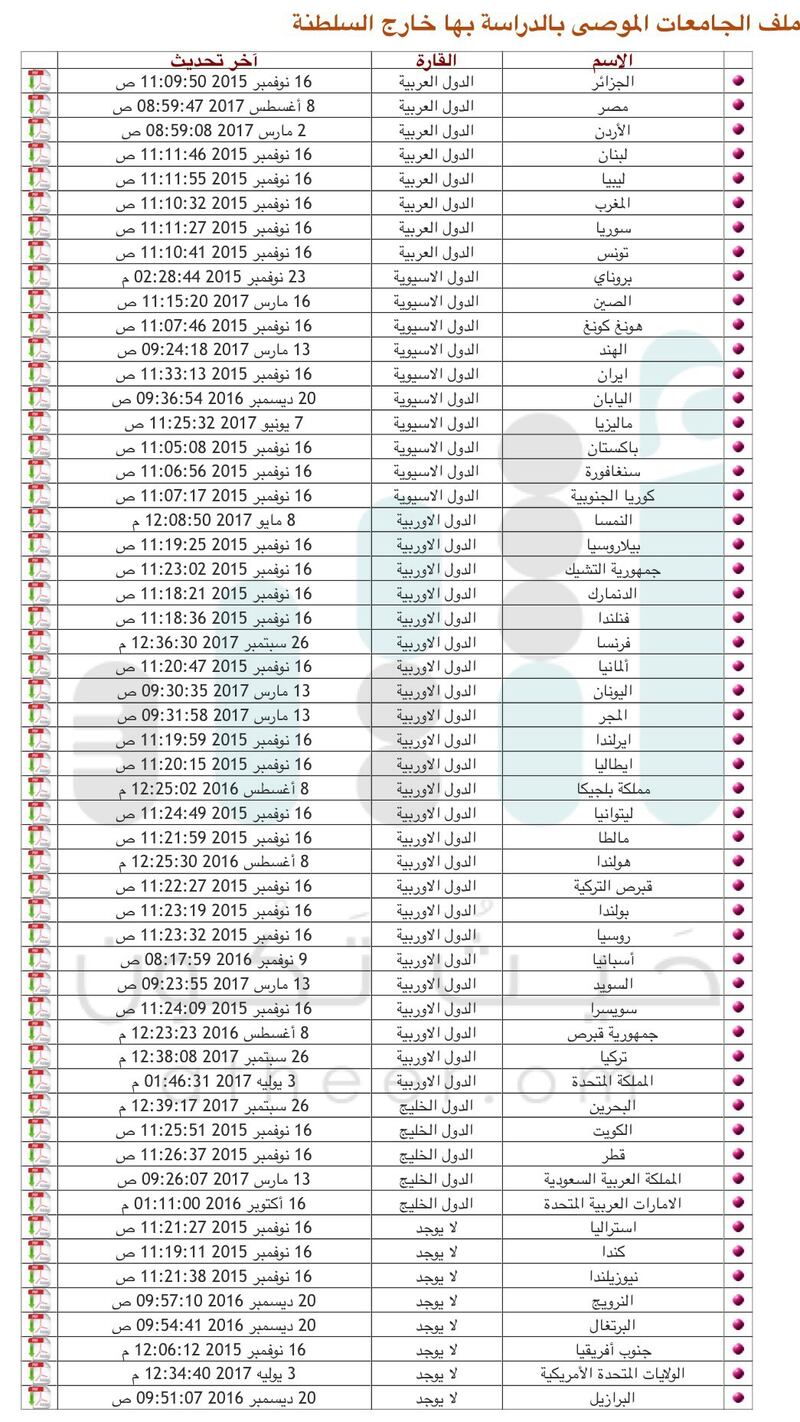 ملف الجامعات الموصى بالدراسة بها خارج السلطنة
الاسم القارة آخر تحديث
الجزائر الدول العربية 16 نوفمبر 2015 11:09:50 ص
مصر الدول العربية 8 أغسطس 2017 08:59:47 ص
الأردن الدول العربية 2 مارس 2017 08:59:08 ص
لبنان الدول العربية 16 نوفمبر 2015 11:11:46 ص
ليبيا الدول العربية 16 نوفمبر 2015 11:11:55 ص
المغرب الدول العربية 16 نوفمبر 2015 11:10:32 ص
سوريا الدول العربية 16 نوفمبر 2015 11:11:27 ص
تونس الدول العربية 16 نوفمبر 2015 11:10:41 ص
بروناي الدول الاسيوية 23 نوفمبر 2015 02:28:44 م
الصين الدول الاسيوية 16 مارس 2017 11:15:20 ص
هونغ كونغ الدول الاسيوية 16 نوفمبر 2015 11:07:46 ص
الهند الدول الاسيوية 13 مارس 2017 09:24:18 ص
ايران الدول الاسيوية 16 نوفمبر 2015 11:33:13 ص
اليابان الدول الاسيوية 20 ديسمبر 2016 09:36:54 ص
ماليزيا الدول الاسيوية 7 يونيو 2017 11:25:32 ص
باكستان الدول الاسيوية 16 نوفمبر 2015 11:05:08 ص
سنغافورة الدول الاسيوية 16 نوفمبر 2015 11:06:56 ص
كوريا الجنوبية الدول الاسيوية 16 نوفمبر 2015 11:07:17 ص
النمسا الدول الاوربية 8 مايو 2017 12:08:50 م
بيلاروسيا الدول الاوربية 16 نوفمبر 2015 11:19:25 ص
جمهورية التشيك الدول الاوربية 16 نوفمبر 2015 11:23:02 ص
الدنمارك الدول الاوربية 16 نوفمبر 2015 11:18:21 ص
فنلندا الدول الاوربية 16 نوفمبر 2015 11:18:36 ص
فرنسا الدول الاوربية 26 سبتمبر 2017 12:36:30 م
ألمانيا الدول الاوربية 16 نوفمبر 2015 11:20:47 ص
اليونان الدول الاوربية 13 مارس 2017 09:30:35 ص
المجر الدول الاوربية 13 مارس 2017 09:31:58 ص
ايرلندا الدول الاوربية 16 نوفمبر 2015 11:19:59 ص
ايطاليا الدول الاوربية 16 نوفمبر 2015 11:20:15 ص
مملكة بلجيكا الدول الاوربية 8 أغسطس 2016 12:25:02 م
ليتوانيا الدول الاوربية 16 نوفمبر 2015 11:24:49 ص
مالطا الدول الاوربية 16 نوفمبر 2015 11:21:59 ص
هولندا الدول الاوربية 8 أغسطس 2016 12:25:30 م
قبرص التركية الدول الاوربية 16 نوفمبر 2015 11:22:27 ص
بولندا الدول الاوربية 16 نوفمبر 2015 11:23:19 ص
روسيا الدول الاوربية 16 نوفمبر 2015 11:23:32 ص
أسبانيا الدول الاوربية 9 نوفمبر 2016 08:17:59 ص
السويد الدول الاوربية 13 مارس 2017 09:23:55 ص
سويسرا الدول الاوربية 16 نوفمبر 2015 11:24:09 ص
جمهورية قبرص الدول الاوربية 8 أغسطس 2016 12:23:23 م
تركيا الدول الاوربية 26 سبتمبر 2017 12:38:08 م
المملكة المتحدة الدول الاوربية 3 يوليه 2017 01:46:31 م
البحرين الدول الخليج 26 سبتمبر 2017 12:39:17 م
الكويت الدول الخليج 16 نوفمبر 2015 11:25:51 ص
قطر الدول الخليج 16 نوفمبر 2015 11:26:37 ص
المملكة العربية السعودية الدول الخليج 13 مارس 2017 09:26:07 ص
الامارات العربية المتحدة الدول الخليج 16 أكتوبر 2016 01:11:00 م
استراليا لا يوجد 16 نوفمبر 2015 11:21:27 ص
كندا لا يوجد 16 نوفمبر 2015 11:19:11 ص
نيوزيلندا لا يوجد 16 نوفمبر 2015 11:21:38 ص
النرويج لا يوجد 20 ديسمبر 2016 09:57:10 ص
البرتغال لا يوجد 20 ديسمبر 2016 09:54:41 ص
جنوب أفريقيا لا يوجد 16 نوفمبر 2015 12:06:12 م
الولايات المتحدة الأمريكية لا يوجد 3 يوليه 2017 12:34:40 م
البرازيل لا يوجد 20 ديسمبر 2016 09:51:07 ص
حَيثُ تَكُون